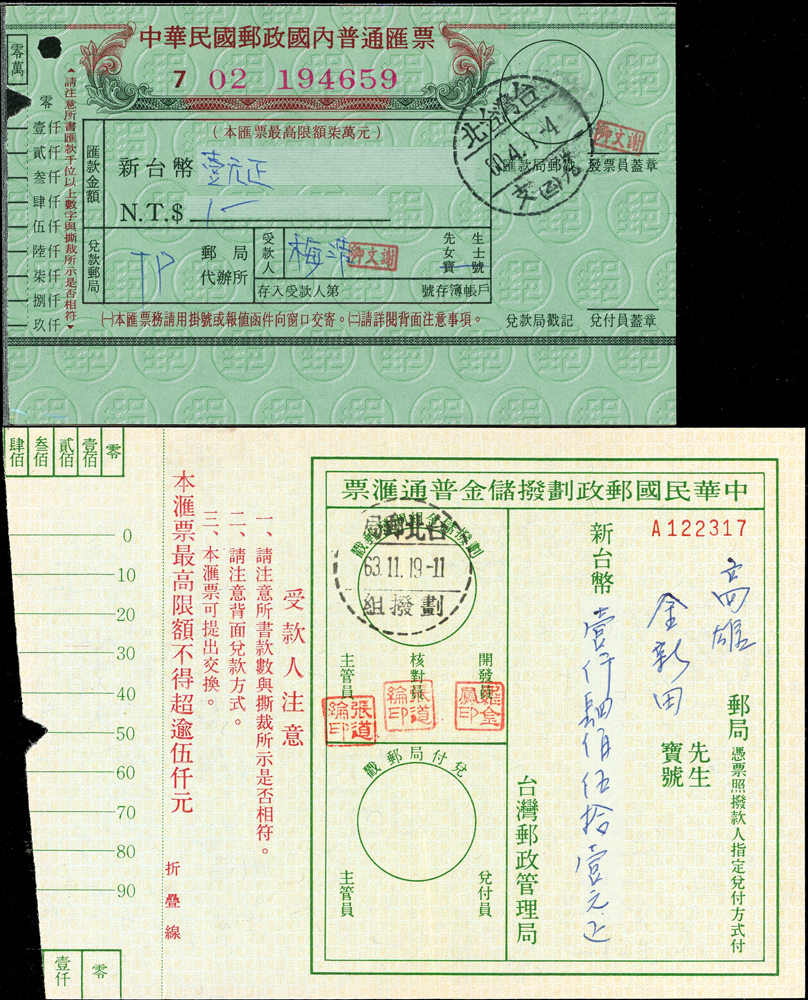 中華民國郵政國內普通匯票
7 02 194659
零萬
零
壹仟
貳仟
叁仟
肆仟
伍仟
陸仟
柒仟
捌仟
玖仟
請注意所書匯款千位以上數字與撕裁所示是否相符
(本匯票最高限額柒萬元)
匯款金額
新台幣 壹元正
N.T.$ 1-
兌款郵局
TP
郵局
代辦所
受款人
梅清
謝文卿
先生
女士
寶號
存入受款人第 號存簿帳戶
台灣台北
60.4.1-4
匯款局郵戳
謝文卿
發票員蓋章
兌款局戳記
兌付員蓋章
㈠本匯票務請用掛號或報値函件向窗口交寄。㈡請詳閱背面注意事項。
零
壹佰
貳佰
叁佰
肆佰
0
10
20
30
40
50
60
70
80
90
壹仟
零
中華民國郵政劃撥儲金普通滙票
A122317
高雄
郵局
憑票照撥款人指定兌付方式付
金新田
先生
寶號
新台幣
壹仟肆佰伍拾壹元正
台灣郵政管理局
台北郵局
63.11.19-11
劃撥組
開發員
核對員
主管員
羅金鳳印
張道綸印
張道綸印
兌付局郵戳
兌付員
主管員
受款人注意
一、請注意所書款數與撕裁所示是否相符。
二、請注意背面兌款方式。
三、本滙票可提出交換。
本滙票最高限額不得超逾伍仟元
折疊線